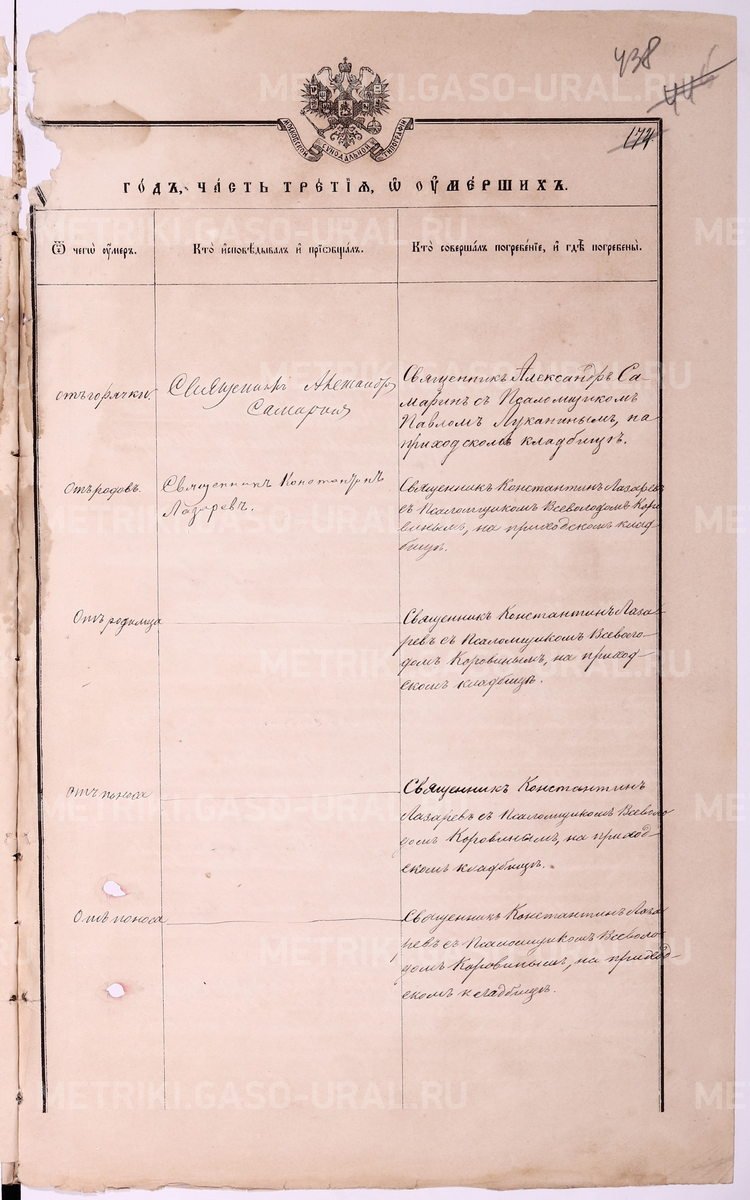 438
44
174
МОСКОВСКОЙ СѴНОДАЛЬНОЙ ТИПОГРАФІИ
ГО́ДЪ, ЧА́СТЬ ТРЕ́ТІѦ, Ѡ ОУМЕ́РШИХЪ.
Ѿ чегѡ̀ оу́меръ.
Кто̀ и҆сповѣ́дывалъ и҆ прїѡбща́лъ.
Кто̀ соверша́лъ погребе́нїе, и҆ гдѣ̀ погребены̀.
отъ горячки.
Священникъ Александръ
Самаринъ
Священникъ Александръ Са-
маринъ съ Псаломщикомъ
Павломъ Луканинымъ, на
приходскомъ кладбищѣ.
Отъ родовъ.
Священникъ Константинъ
Лазаревъ.
Священникъ Константинъ Лазаревъ
съ Псаломщикомъ Всеволодомъ Коро
винымъ, на приходскомъ клад
бищѣ.
Отъ родимца
Священникъ Константинъ Лаза-
ревъ съ Псаломщикомъ Всеволо-
домъ Коровинымъ, на приход-
скомъ кладбищѣ.
Отъ поноса
Священникъ Константинъ
Лазаревъ съ Псаломщикомъ Всеволо
домъ Коровинымъ, на приход-
скомъ кладбищѣ.
Отъ поноса
Священникъ Константинъ Лаза
ревъ съ Псаломщикомъ Всеволо-
домъ Коровинымъ, на приход-
скомъ кладбищѣ.
METRIKI.GASO-URAL.RU